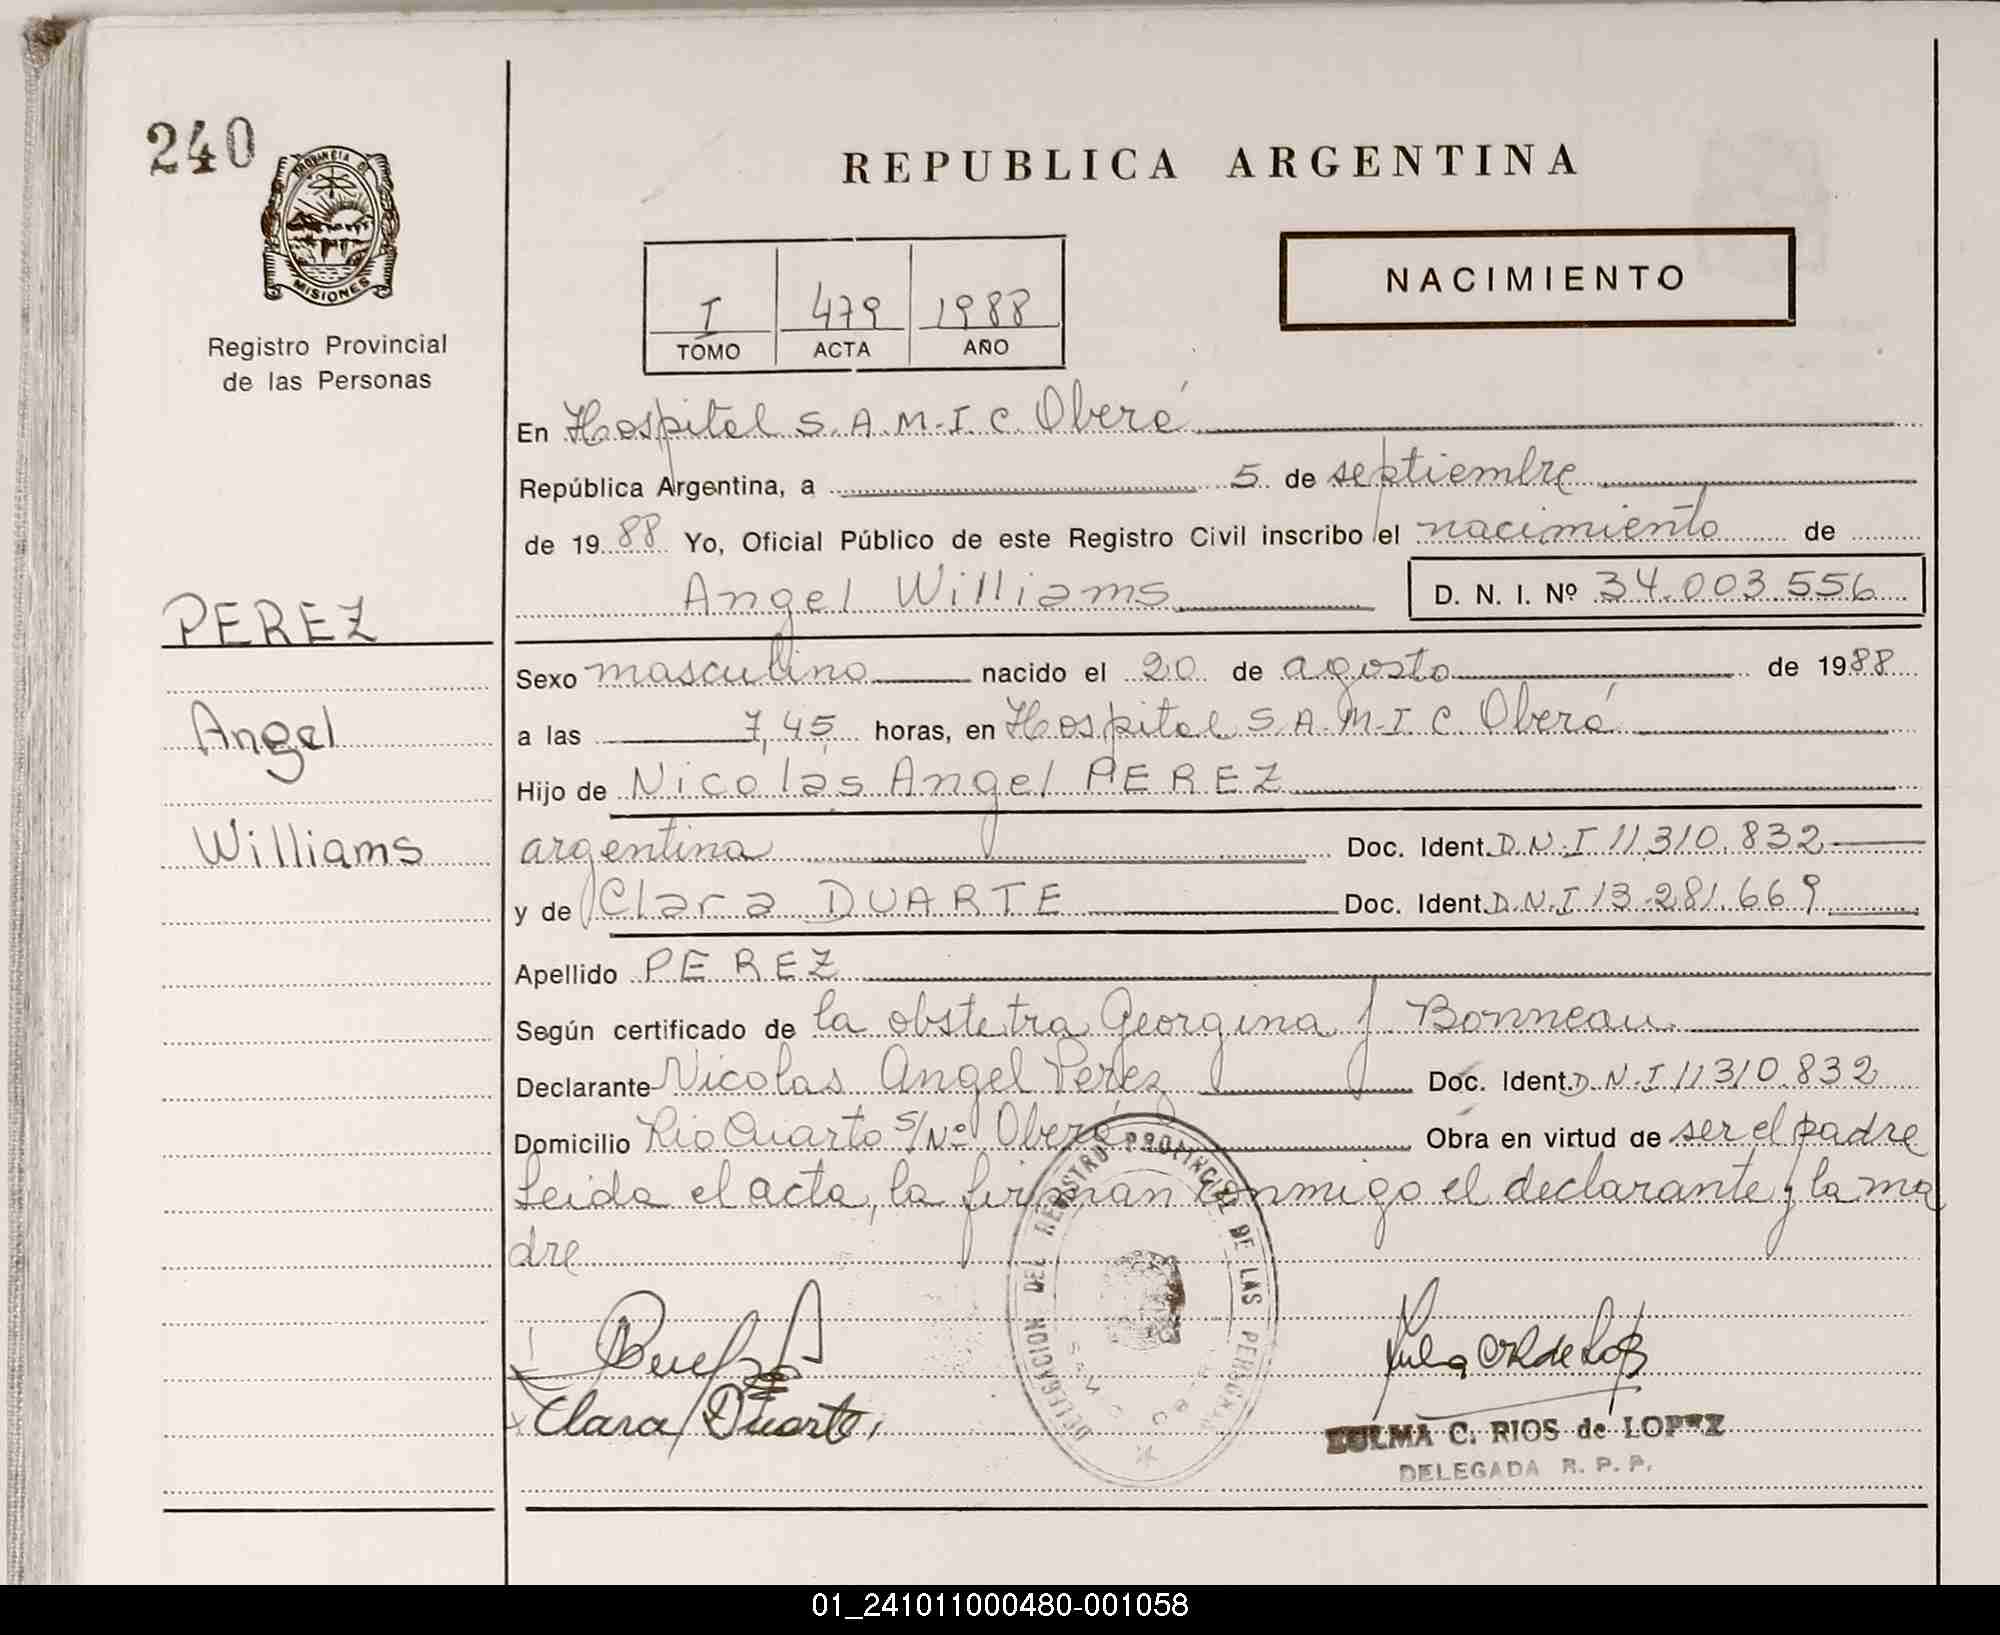 240
PROVINCIA DE
MISIONES
Registro Provincial
de las Personas
PEREZ
Angel
Williams
REPUBLICA ARGENTINA
I 479 1988
TOMO ACTA AÑO
NACIMIENTO
En Hospital S.A.M.I.C. Oberá
República Argentina, a 5 de septiembre
de 1988 Yo, Oficial Público de este Registro Civil inscribo el nacimiento de
Angel Williams D. N. I. Nº 34.003.556
Sexo masculino nacido el 20 de agosto de 1988
a las 7,45 horas, en Hospital S.A.M.I.C. Oberá
Hijo de Nicolás Angel PEREZ
argentina Doc. Ident. D.N.I 11.310.832
y de Clara DUARTE Doc. Ident. D.N.I 13.281.669
Apellido PEREZ
Según certificado de la obstetra Georgina J. Bonneau.
Declarante Nicolas Angel Perez Doc. Ident. D.N.I 11310.832
Domicilio Rio Cuarto s/Nº Oberá Obra en virtud de ser el padre
Leida el acta, la firman conmigo el declarante y la ma
dre
DELEGACION DEL REGISTRO PROVINCIAL DE LAS PERSONAS
Clara Duarte
ZULMA C. RIOS de LOPEZ
DELEGADA R. P. P.
01_241011000480-001058